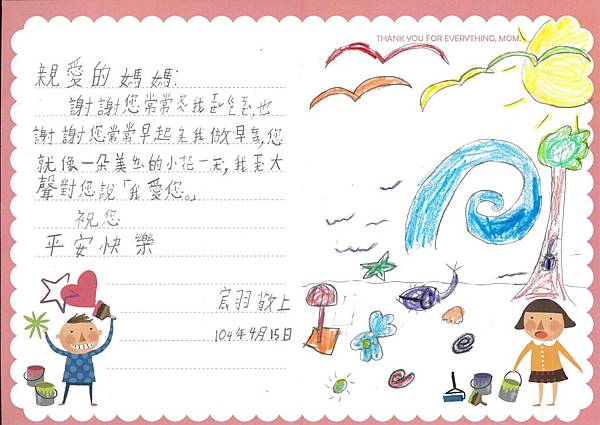 THANK YOU FOR EVERYTHING, MOM.
親愛的媽媽:
謝謝您常常 我 ,也
謝謝您常常早起 我做早 ,您
就像一朵美 的小花一 ,我要大
聲對您說「我愛您。」
祝您
平安快樂
羽 敬上
104年4月15日